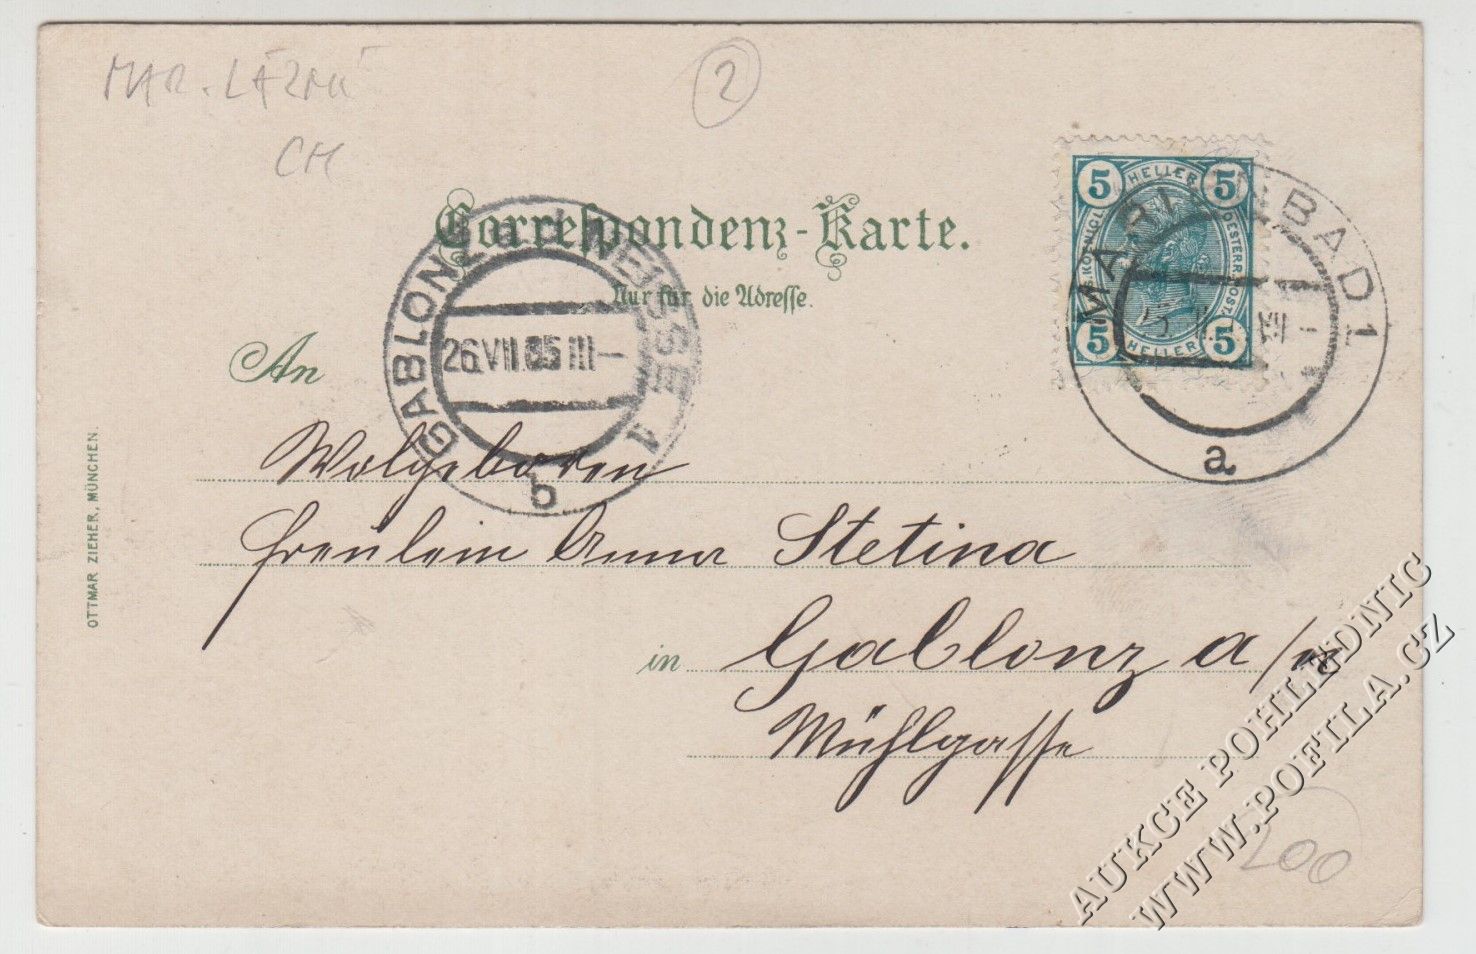 MAR. LÁZNĚ
CH
2
Correspondenz-Karte.
Nur für die Adresse.
5 HELLER 5
K.K. KÖNIGL. OESTERR. POST.
5 HELLER 5
MARIENBAD 1
a
GABLONZ A.D. NEISSE 1
26.VII.05 III-
b
An
Wolgeboren
Freulein Anna Stetina
in Gablonz a/n
Mühlgasse
OTTMAR ZIEHER, MÜNCHEN.
200
AUKCE POHLEDNIC
WWW.POFILA.CZ